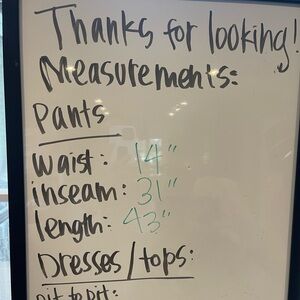 Thanks for looking!
Measurements:
Pants
Waist: 14"
inseam: 31"
length: 43"
Dresses/tops:
pit to pit: